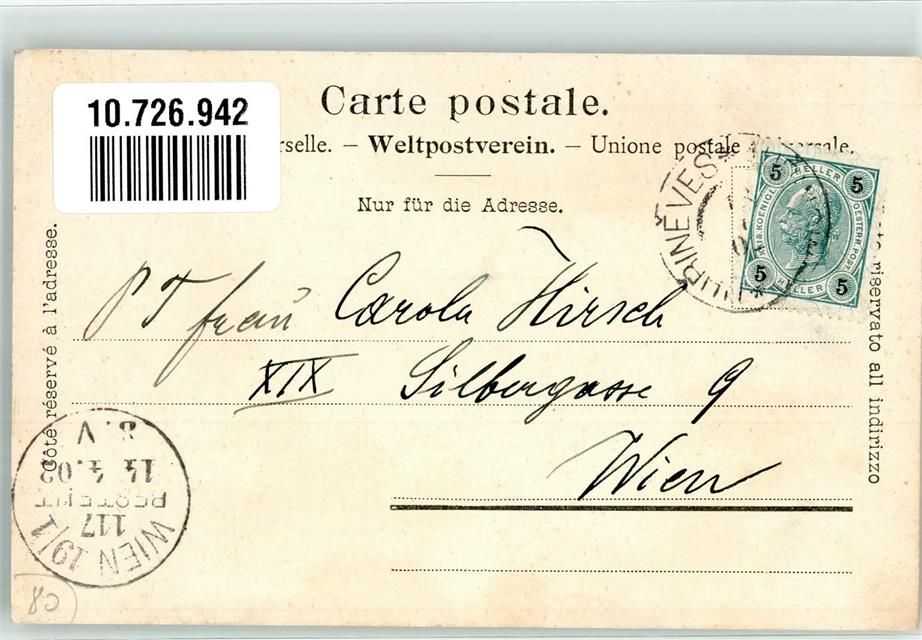 10.726.942
Carte postale.
rselle. – Weltpostverein. – Unione postale universale.
Nur für die Adresse.
Côté réservé à l'adresse.
riservato all indirizzo
P T Frau Carola Hirsch
XIX Silbergasse 9
Wien
5 HELLER 5
KAIS. KOENIGL. OESTERR. POST
5 HELLER 5
WIEN 19/1
117
BESTELLT
14.4.02
8.V